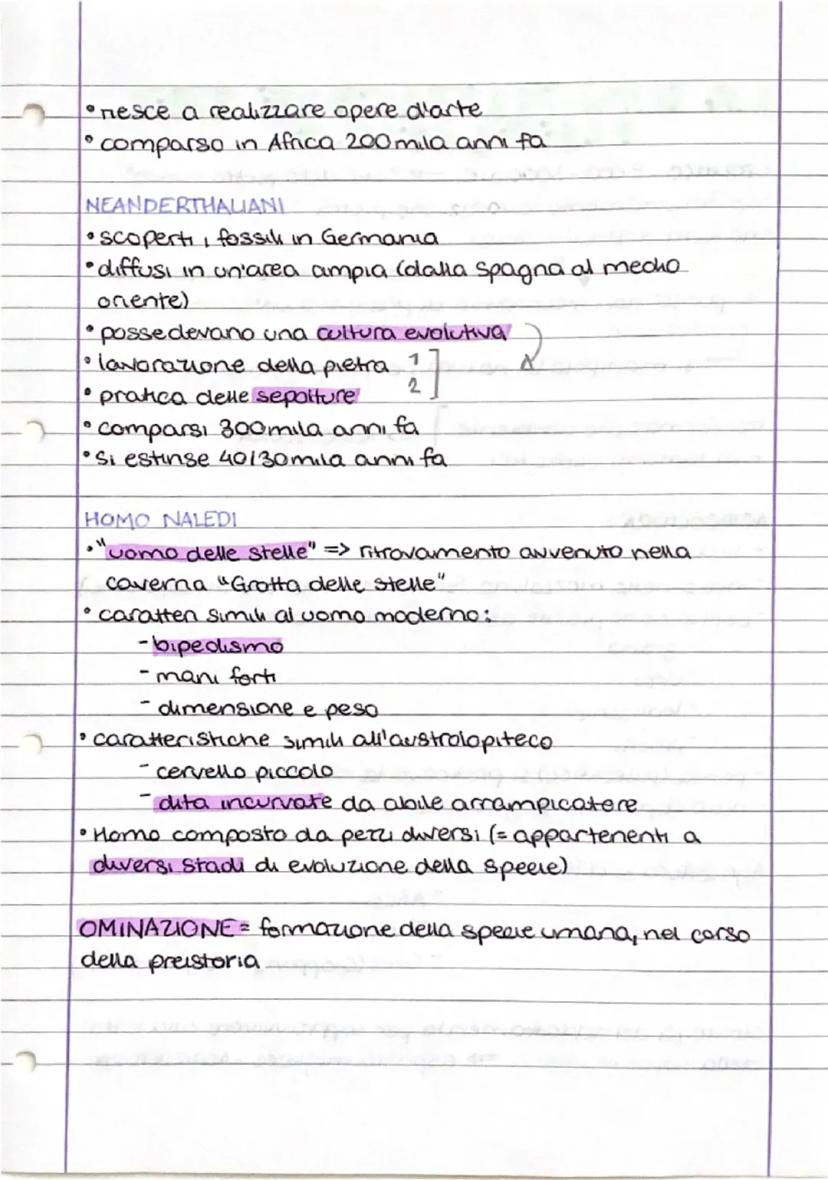 • riesce a realizzare opere d'arte
• comparso in Africa 200mila anni fa
NEANDERTHALIANI
• scoperti i fossili in Germania
• diffusi in un'area ampia (dalla Spagna al medio
oriente)
• possedevano una cultura evolutiva
• lavorazione della pietra 1
• pratica delle sepolture 2
• comparsi 300mila anni fa
• si estinse 40/30mila anni fa
HOMO NALEDI
• "uomo delle stelle" => ritrovamento avvenuto nella
caverna "Grotta delle stelle"
• caratteri simili al uomo moderno:
- bipedismo
- mani forti
- dimensione e peso
• caratteristiche simili all'austrolopiteco
- cervello piccolo
- dita incurvate da abile arrampicatere
• Homo composto da pezzi diversi (= appartenenti a
diversi stadi di evoluzione della specie)
OMINAZIONE = formazione della specie umana, nel corso
della preistoria